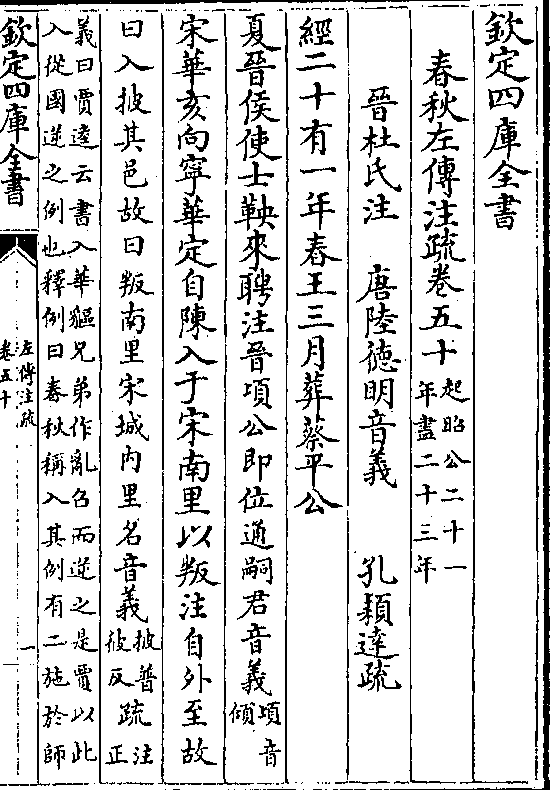 欽定四庫全書
春秋左傳注疏卷五十
起昭公二十一
年盡二十三年
晉杜氏注 唐陸德明音義 孔穎達疏
經二十有一年春王三月葬蔡平公
夏晉侯使士鞅來聘注晉頃公即位通嗣君音義
頃音
傾
宋華亥向寧華定自陳入于宋南里以叛注自外至故
曰入披其邑故曰叛南里宋城內里名音義
披普
彼反
疏
注
正
義曰賈逵云書入華貙兄弟作亂召而逆之是賈以此
入從國逆之例也釋例曰春秋稱入其例有二施於師
欽定四庫全書
左傳注疏
卷五十
一